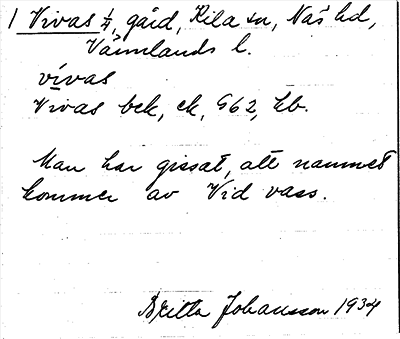 1 Vivas 1/4, gård, Kila sn, Näs hd,
Värmlands l.
vívas
Vivas bek, ek, G62, hb.
Man har gissat, att namnet
kommer av Vid vass.
Britta Johansson 1934